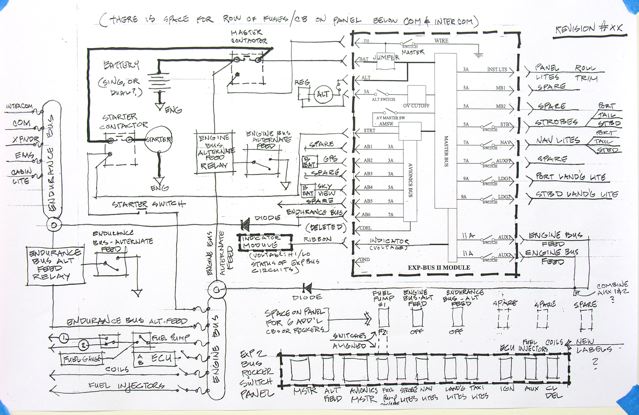 (THERE IS SPACE FOR ROW OF FUSES/CB ON PANEL BELOW COM & INTERCOM)
REVISION #XX
MASTER CONTACTOR
BATTERY
(SING, OR DUAL?)
ENG
STARTER CONTACTOR
STARTER
ENG
STARTER SWITCH
INTERCOM
COM
XPNDR
EMS
CABIN LITE
ENDURANCE BUS
ENDURANCE BUS ALT FEED RELAY
ENDURANCE BUS-ALTERNATE FEED
ENGINE BUS ALTERNATE FEED RELAY
ENGINE BUS ALTERNATE FEED
REG
ALT
SPARE
GPS
SPARE
SKY VIEW
SPARE
ENDURANCE BUS
(DELETED)
RIBBON
DIODE
INDICATOR MODULE
(VOLTAGE: HI/LO STATUS OF EXPBUS CIRCUITS)
ENGINE BUS ALTERNATE FEED
DIODE
WIRE
SWITCH
MASTER
BAT
JUMPER
ALT
ALT SWITCH
OV CUTOFF
AV MASTER SW
AMSW
STRT
AB1
AB2
AB3
AB4
AB5
AB6
CDBL
GND
AVIONICS BUS
MASTER BUS
INDICATOR
(VOLTAGE)
EXP-BUS II MODULE
INST LTS
MB1
MB2
STB
NAV
AUXP
LDG1
LDG2
AUX1
AUX2
PANEL LITES
ROLL TRIM
SPARE
SPARE
STROBES
PORT TAIL STBD
NAV LITES
PORT TAIL STBD
SPARE
PORT LAND'G LITE
STBD LAND'G LITE
ENGINE BUS FEED
ENGINE BUS FEED
COMBINE AUX 1 & 2 ?
ENDURANCE BUS ALT-FEED
FUEL PUMP
FUEL GAUGE
ECU
COILS
FUEL INJECTORS
ENGINE BUS
SPACE ON PANEL FOR 6 ADD'L CB OR ROCKERS
SWITCHES ALIGNED
FUEL PUMP #1
ENGINE BUS-ALT FEED
OFF
ENDURANCE BUS ALT FEED
OFF
SPARE
SPARE
SPARE
ECU
FUEL INJECTORS
COILS
NEW LABELS ?
EXP 2 BUS ROCKER SWITCH PANEL
MSTR
ALT FIELD
AVIONICS MSTR
STROBE LITES
NAV LITES
LAND'G LITES
TAXI LITES
IGN
AUX
CL DEL